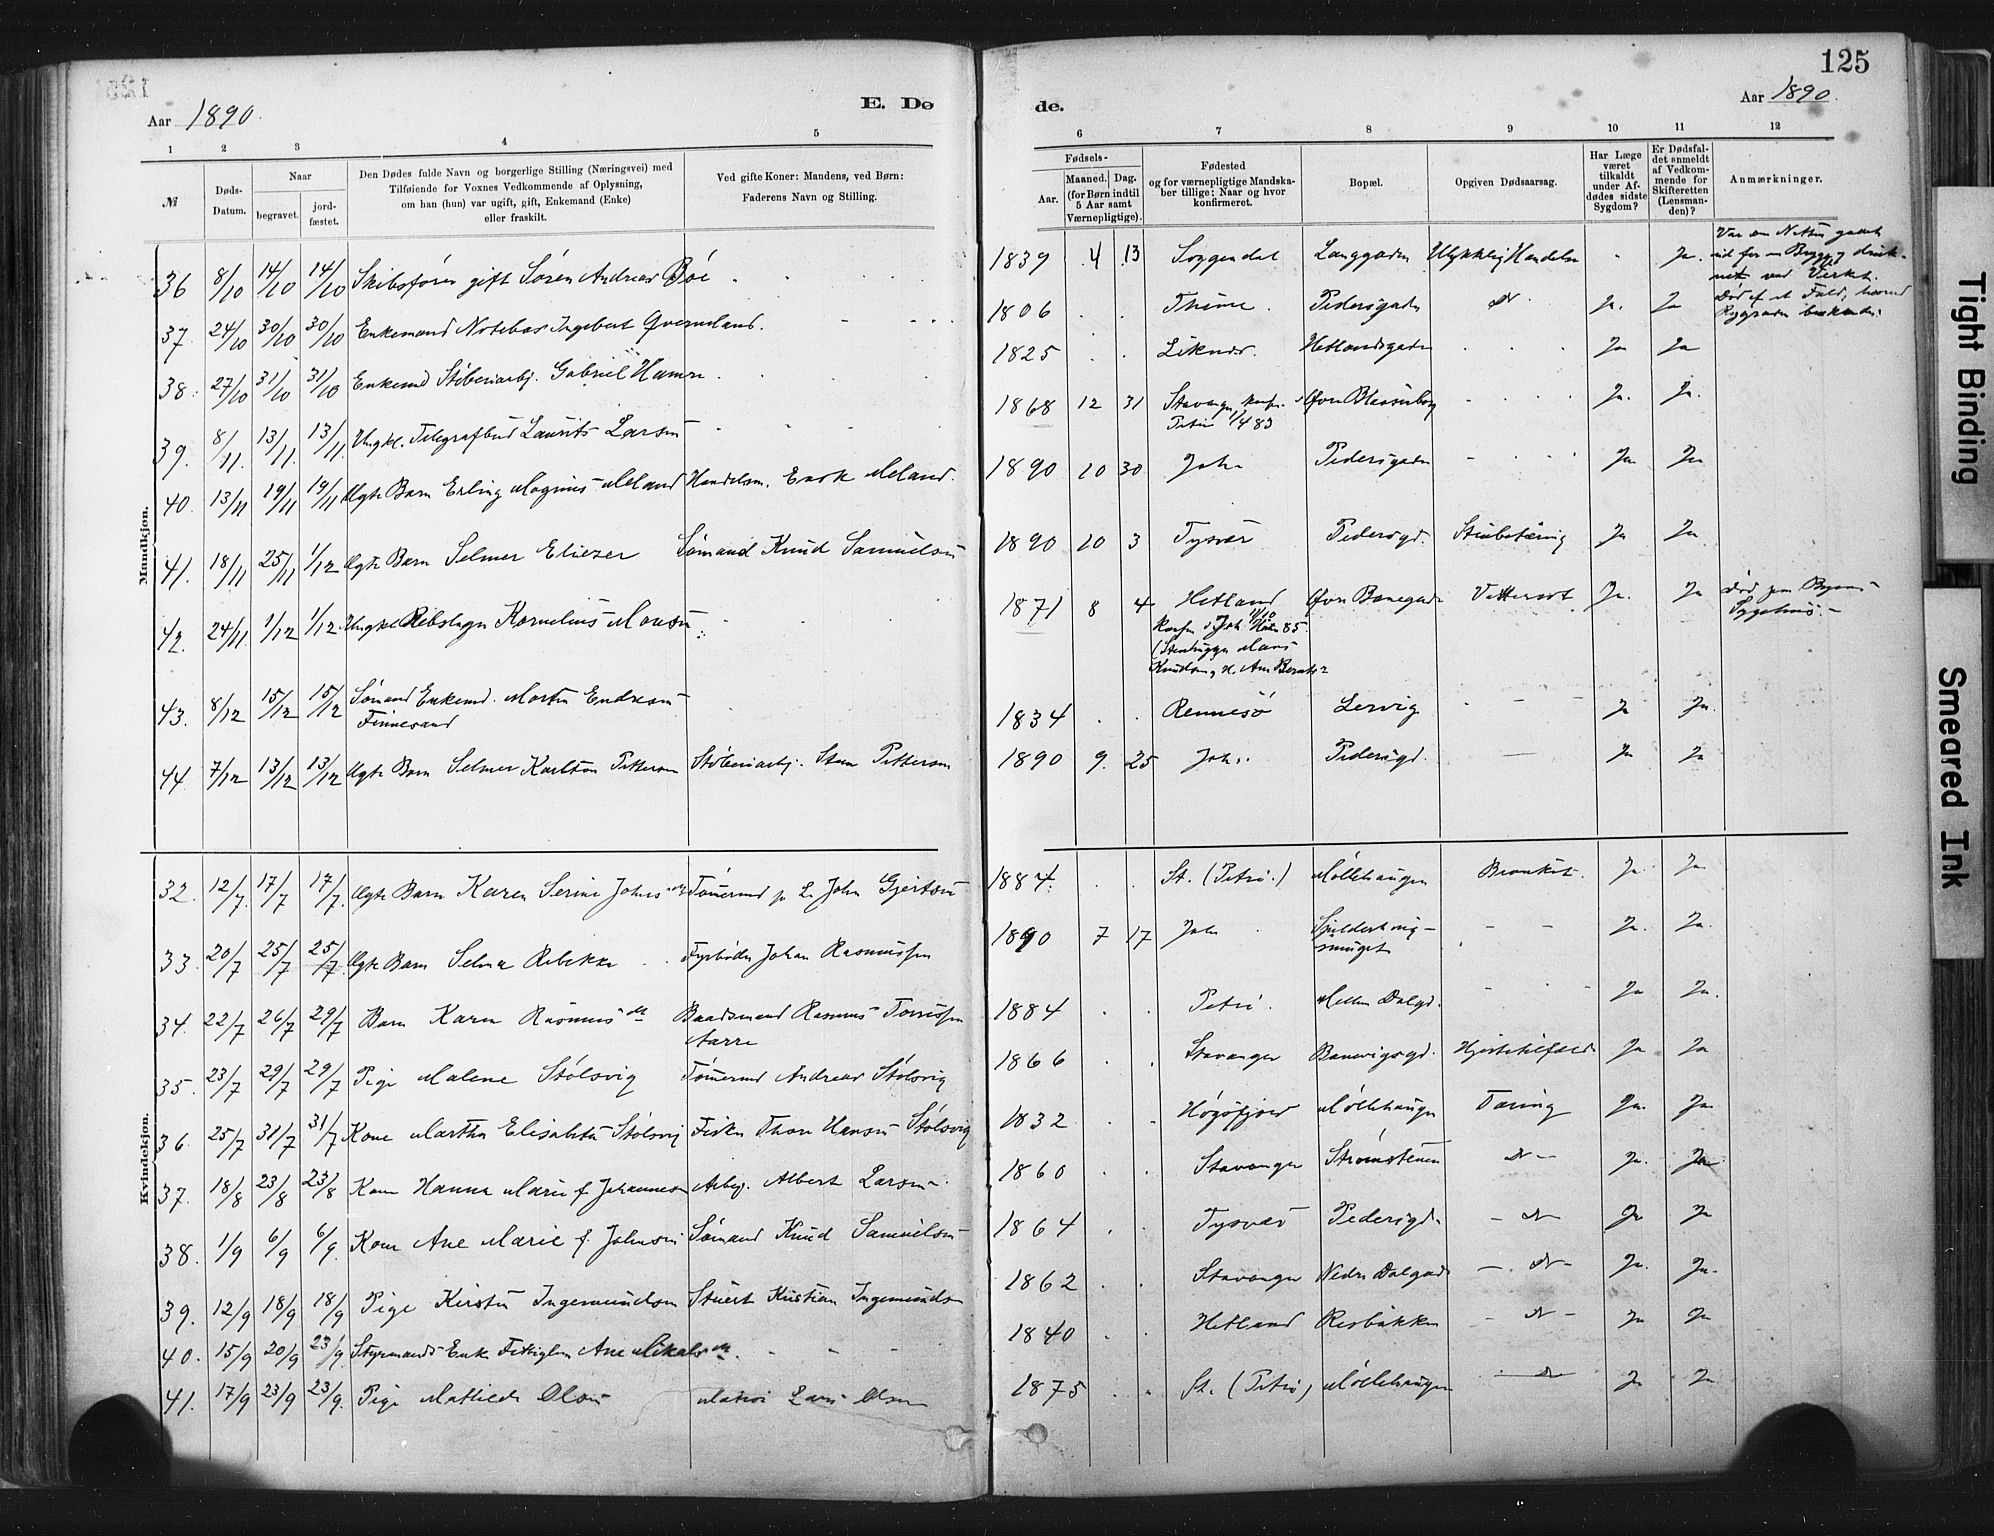 125
Aar 1890.
E. Dø
de.
Aar 1890.
1 2 3 4 5 6 7 8 9 10 11 12
№
Døds-
Datum.
Naar
begravet.
jord-
fæstet.
Den Dødes fulde Navn og borgerlige Stilling (Næringsvei) med
Tilføiende for Voxnes Vedkommende af Oplysning,
om han (hun) var ugift, gift, Enkemand (Enke)
eller fraskilt.
Ved gifte Koner: Mandens, ved Børn:
Faderens Navn og Stilling.
Fødsels-
Aar.
Maaned. Dag.
(for Børn indtil
5 Aar samt
Værnepligtige).
Fødested
og for værnepligtige Mandska-
ber tillige: Naar og hvor
konfirmeret.
Bopæl.
Opgiven Dødsaarsag.
Har Læge
været
tilkaldt
under Af-
dødes sidste
Sygdom?
Er Dødsfal-
det anmeldt
af Vedkom-
mende for
Skifteretten
(Lensman-
den)?
Anmærkninger.
Mandkjøn.
36 8/10 14/10 14/10 Skibsfører gift Sören Andreas Böe 1839 4 13 Soggendal Langgaden Ulykkelig Hændelse Ja.
37. 24/10 30/10 30/10 Enkemand Notebas Ingebret Qverneland. 1806 Thime Pedersgaden Ja. Ja
38. 27/10 31/10 31/10 Enkemd Stöberiarbj. Gabriel Hamre 1825 Hetlandsgaden Ja Ja
39. 8/11. 13/11. 13/11. Ungkl. Telegrafbud Laurits Larsen 1868 12 31 Stavanger konf. i Øvre Blaasenborg Ja. Ja.
Petri 1/4 83
40. 13/11 19/11 19/11 Ægte Barn Erling Magnus Meland Handelsm. Enok Meland. 1890 10 30 Joh. Pedersgaden Ja Ja
41. 18/11 25/11 1/12 Ægte Barn Selmer Eliezer Sömand Knud Samuelsen 1890 10 3 Tysvær Pedersgd. Ja Ja
42. 24/11. 1/12 1/12 Ungkl Rebslager Kornelius Monsen 1871 8 4 Hetland Øvre Banegade Vattersot Ja. Ja Död paa Byens
Sygehus.
43. 8/12 15/12 15/12 Sömand Enkemd. Morten Endresen
Finnesand 1834 Rennesö Lervig Ja Ja.
44. 7/12 13/12 13/12 Ægte Barn Selmer Karlton Pettersen Stöberiarbj. Sten Pettersen 1890 9. 25 Joh. Pedersgd. Ja Ja
Kvindekjøn.
32. 12/7. 17/7 17/7. Ægte Barn Karen Serine Johns dtr Tömermd Gjertsen 1884. St. (Petri.) Möllehaugen Bronkit. Ja. Ja
33. 20/7 25/7 25/7 Ægte Barn Selma Rebekka Fyrböder Johan Rasmussen 1890 7 17 Joh Ja. Ja.
smuget
34. 22/7 26/7 29/7 Barn Karen Rasmus dtr Baadsmand Rasmus Torrissen
Aarre 1884 Petri. Mellem Dalgd. Ja Ja.
35. 23/7 29/7 29/7 Pige Malene Stölsvig Tömermd Andreas Stölsvig 1866 Stavanger Banevigsgd. Hjertetilfælde Ja Ja
36. 25/7 31/7 31/7 Kone Martha Elisabeth Stölsvig Fisker Thore Hansen Stölsvig 1832 Högsfjord Möllehaugen Tæring Ja. Ja
37. 18/8 23/8 23/8 Kone Hanna Marie f. Johannesen Arbj. Albert Larsen 1860 Stavanger Strömstenen Ja. Ja
38. 1/9 6/9 6/9. Kone Ane Marie f. Johnsen Sömand Knud Samuelsen 1864 Tysvær Pedersgd. Ja Ja
39. 12/9 18/9 18/9 Pige Kirsten Ingemundsen Stuert Kristian Ingemundsen 1862 Stavanger Nedre Dalgade Ja. Ja.
40. 15/9 20/9 23/9. Styrmands Enke Fattiglem Ane Mikals dtr. 1840 Hetland Resbakken Ja Ja
41. 17/9 23/9 23/9. Pige Mathilde Olsen Matros Lars Olsen 1875 St. (Petri) Möllehaugen Ja Ja
Tight Binding
Smeared Ink